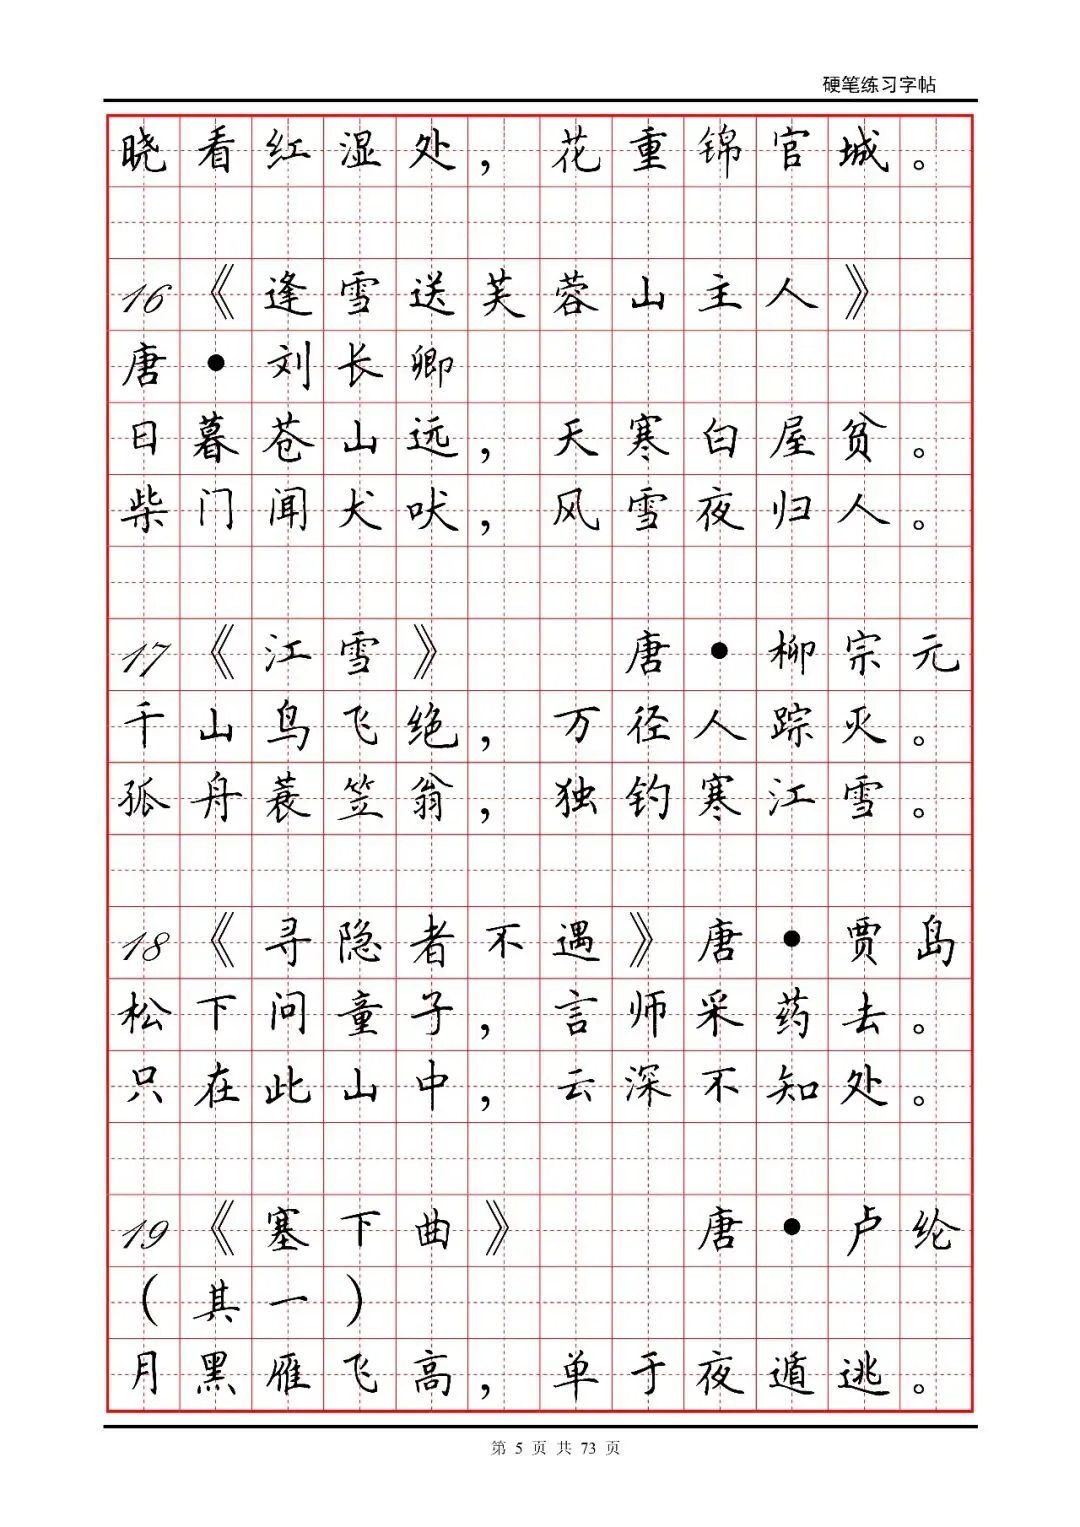 硬笔练习字帖
晓看红湿处，花重锦官城。
16《逢雪送芙蓉山主人》
唐•刘长卿
日暮苍山远，天寒白屋贫。
柴门闻犬吠，风雪夜归人。
17《江雪》 唐•柳宗元
千山鸟飞绝，万径人踪灭。
孤舟蓑笠翁，独钓寒江雪。
18《寻隐者不遇》唐•贾岛
松下问童子，言师采药去。
只在此山中，云深不知处。
19《塞下曲》 唐•卢纶
（其一）
月黑雁飞高，单于夜遁逃。
第 5 页 共 73 页